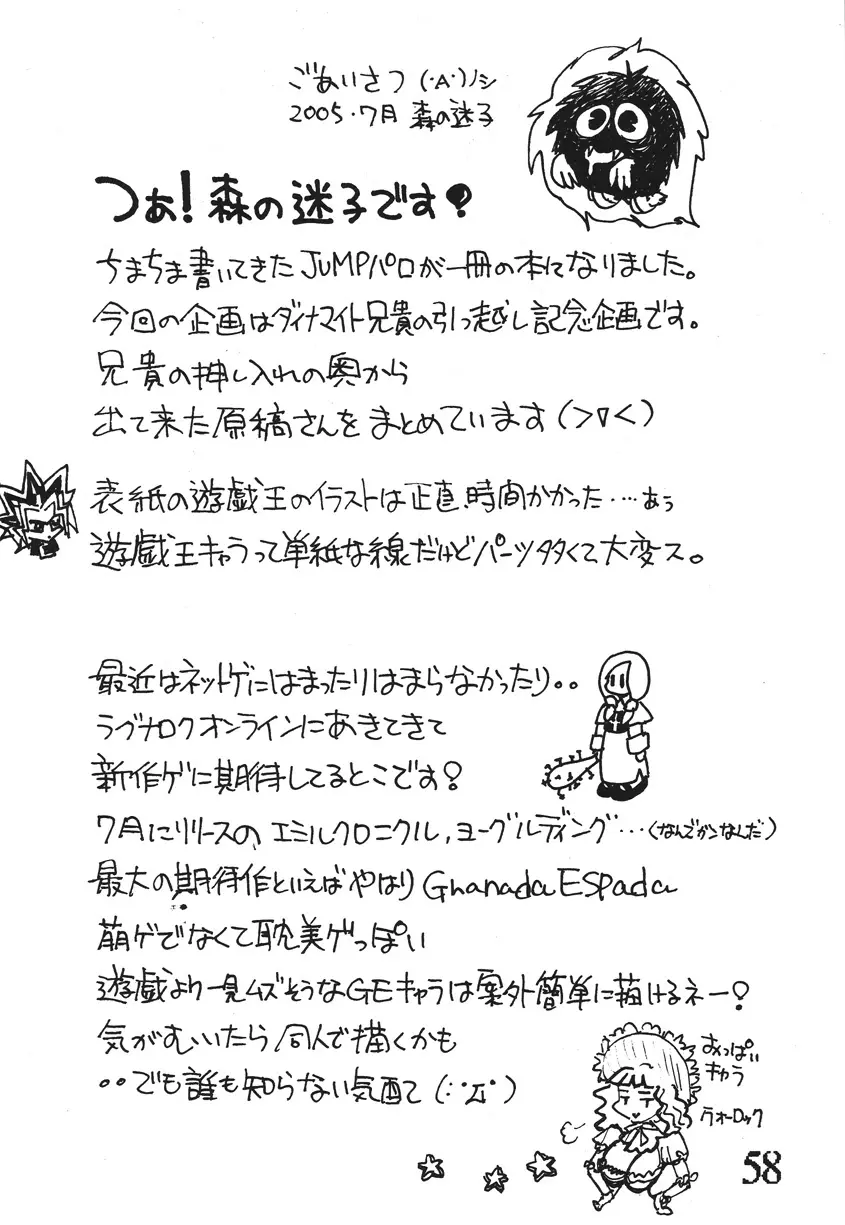 ごあいさつ (・A・)ノシ
2005・7月 森の迷子
つぁ!森の迷子です?
ちまちま書いてきたJUMPパロが一冊の本になりました。
今回の企画はダイナマイト兄貴の引っ越し記念企画です。
兄貴の押し入れの奥から
出て来た原稿さんをまとめています(>▽<)
表紙の遊戯王のイラストは正直時間かかった‥‥ぁぅ
遊戯王キャラって単純な線だけどパーツ多くて大変ス。
最近はネットゲにはまったりはまらなかったり。。
ラグナロクオンラインにあきてきて
新作ゲに期待してるとこです?
7月にリリースの、エミルクロニクル,ヨーグルディング…(なんでかンなんだ)
最大の期待作といえばやはり Gnanada ESpada
萌ゲでなくて耽美ゲっぽい
遊戯より一見ムズそうなGEキャラは案外簡単に描けるネー?
気がむいたら同人で描くかも
・・でも誰も知らない気配で(;゚Д゚)
おっぱい
キャラ
ウォーロック
58